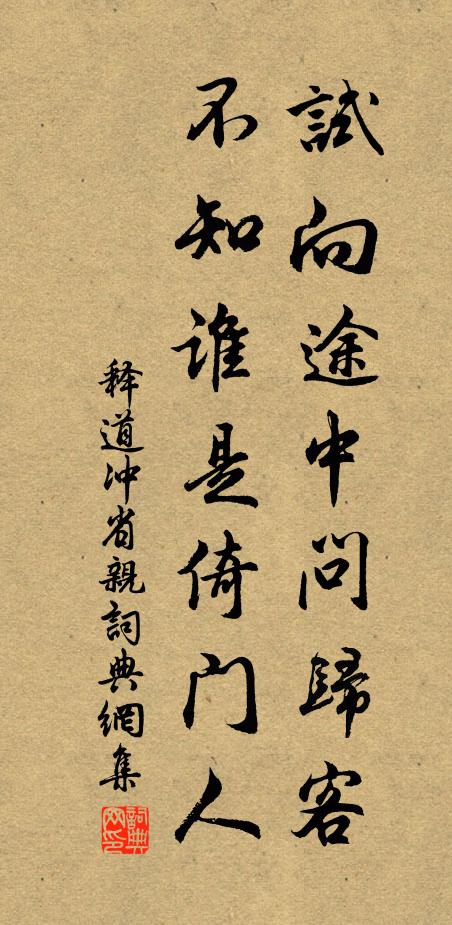 試向途中問歸客
不知誰是倚門人
释道冲省親詞典網集
詞典网印